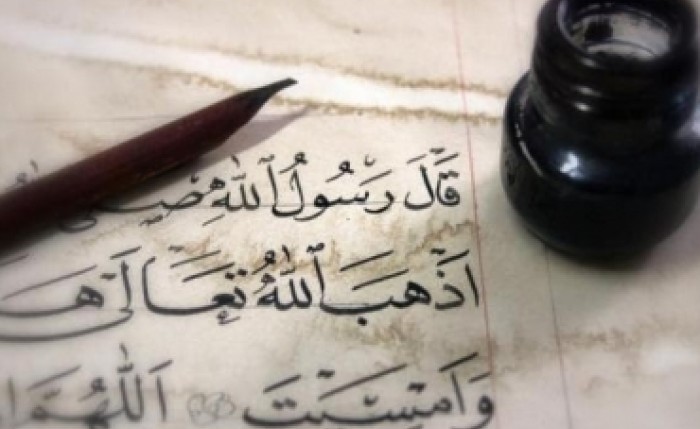 قَالَ رَسُولُ ٱللَّهِ صَلَّى
اَذْهَبَ ٱللَّهُ تَعَالَىٰ
وَاَمْسَيْتَ اَللّٰهُمَّ